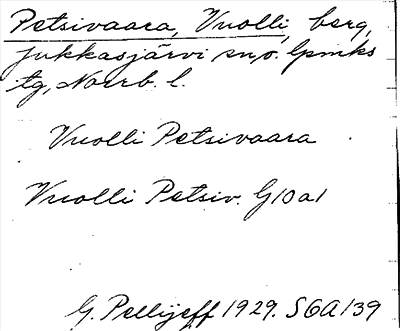 Petsivaara, Vuolli, berg,
Jukkasjärvi sn, o. lpmks
tg, Norrb. l.
Vuolli Petsivaara
Vuolli Petsiv. G10a1
G. Pellijeff 1929. SGA 139